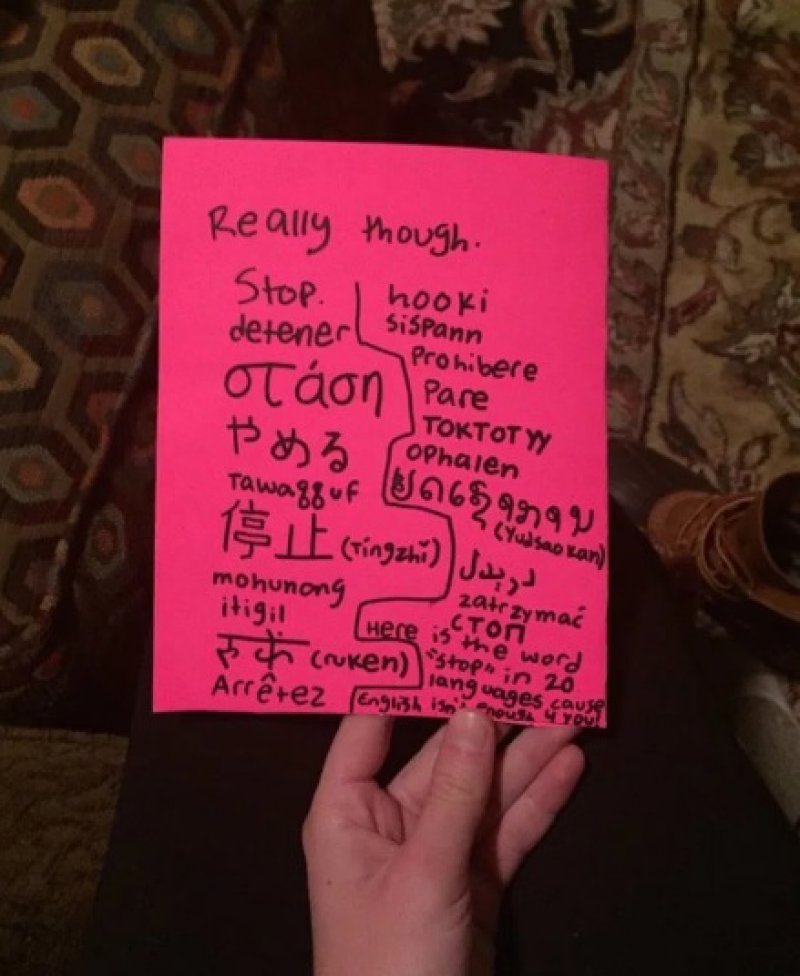 Really though.
Stop.
detener
στάση
やめる
Tawagguf
停止 (Tíngzhǐ)
mohunong
itigil
रुकें (ruken)
Arrêtez
hooki
sispann
Prohibere
Pare
ТОКТОТУУ
ophalen
(Yudsaokan)
zatrzymać
СТОП
Here is the word
"stop" in 20
languages cause
English isn't enough 4 you!